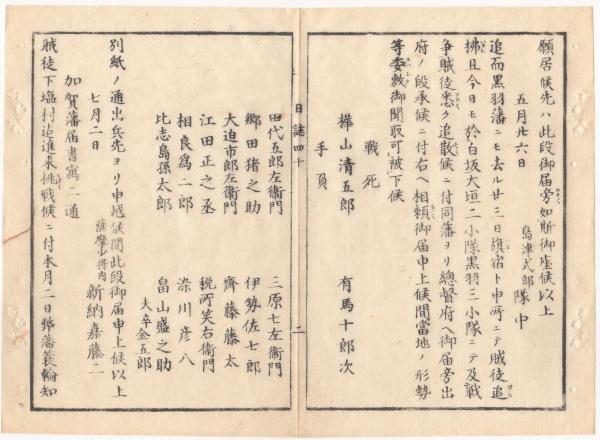 願居候先ハ此段御届旁如斯御座候以上
五月廿六日　島津式部隊中
追而黒羽藩ニモ去ル廿三日旗宿ト申所ニテ賊徒追
拂且今日モ於白坂大垣二小隊黒羽三小隊ニテ及戦
争賊徒悉ク追散候ニ付同藩ヨリ總督府ヘ御届旁出
府ノ段承候ニ付右ヘ相頼御届申上候間當地ノ形勢
等委敷御聞取可被下候
戦死
樺山清五郎　有馬十郎次
手負
日誌四十　二
田代五郎左衛門　三原七左衛門
郷田猪之助　伊勢佐七郎
大迫市郎左衛門　齊藤藤太
江田正之丞　税所笑右衛門
相良為二郎　染川彦八
比志島孫太郎　畠山盛之助
夫卒金五郎
別紙ノ通出兵先ヨリ申越候間此段御届申上候以上
七月二日　薩摩少将内　新納嘉藤二
加賀藩届書寫二通
賊徒下塩村迠進来挑戦候ニ付本月二日弊藩蓑輪知